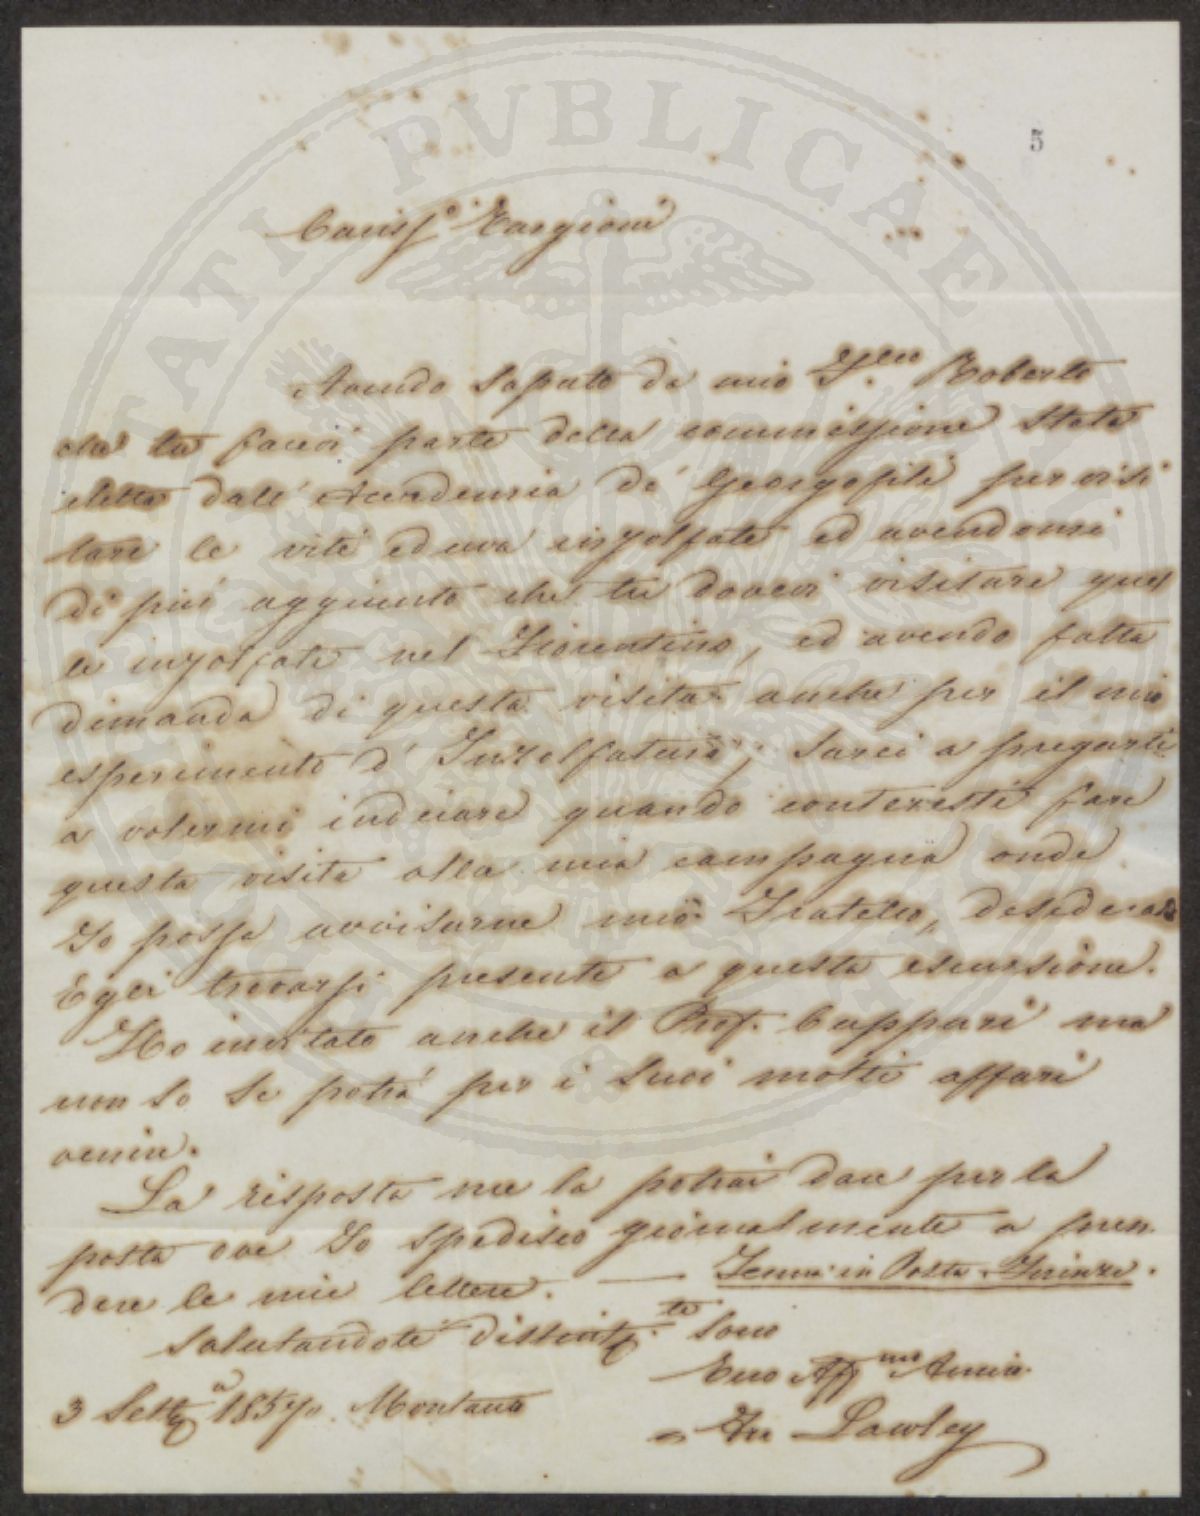 5
Cariss.o Targioni
Avendo saputo da mio F.llo Roberto
che tu facevi parte della commissione stata
eletta dall'Accademia de' Georgofili per visi
tare le viti ed uva inzolfate ed avendomi
di più aggiunto che tu dovevi visitare quel
le inzolfate nel Fiorentino, ed avendo fatta
dimanda di questa visita anche per il mio
esperimento d'Inzolfatura, sarei a pregarti
a volermi indicare quando conteresti fare
questa visita alla mia campagna onde
Io possa avvisarne mio Fratello,
Egli trovarsi presente a questa escursione.
Ho invitato anche il Prof. Cuppari ma
non so se potrà per i suoi molti affari
venire.
La risposta me la potrai dare per la
posta ove Io spedisco giornalmente a pren
dere le mie lettere. — Ferma in Posta. Firenze.
Salutandoti distint.te sono
Tuo Aff.mo Amico
3 Sett. 1857.
Lawley
PUBLICAE